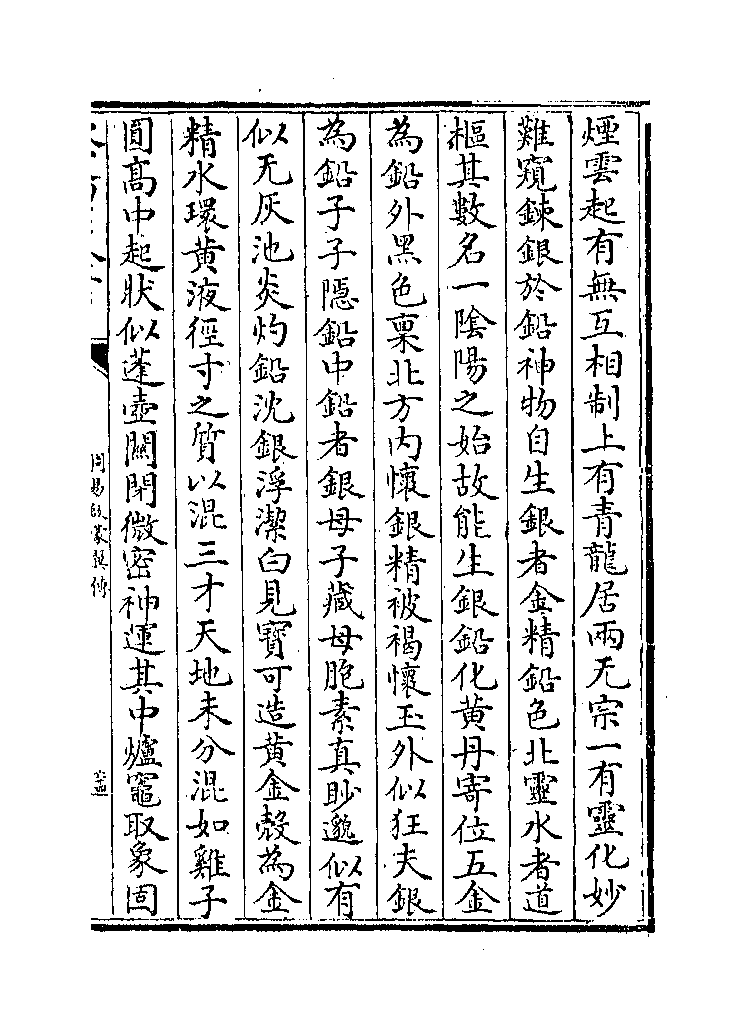 煙雲起有無互相制上有青龍居兩无宗一有靈化妙
難窺鍊銀於鉛神物自生銀者金精鉛色北靈水者道
樞其數名一隂陽之始故能生銀鉛化黄丹寄位五金
為鉛外黑色稟北方内懷銀精被褐懷玉外似狂夫銀
為鉛子子隱鉛中鉛者銀母子藏母胞素真眇邈似有
似无灰池炎灼鉛沈銀浮潔白見寳可造黄金殻為金
精水環黄液徑寸之質以混三才天地未分混如雞子
圓髙中起狀似蓬壺關閉微密神運其中爐竈取象固
周易啟蒙翼傳